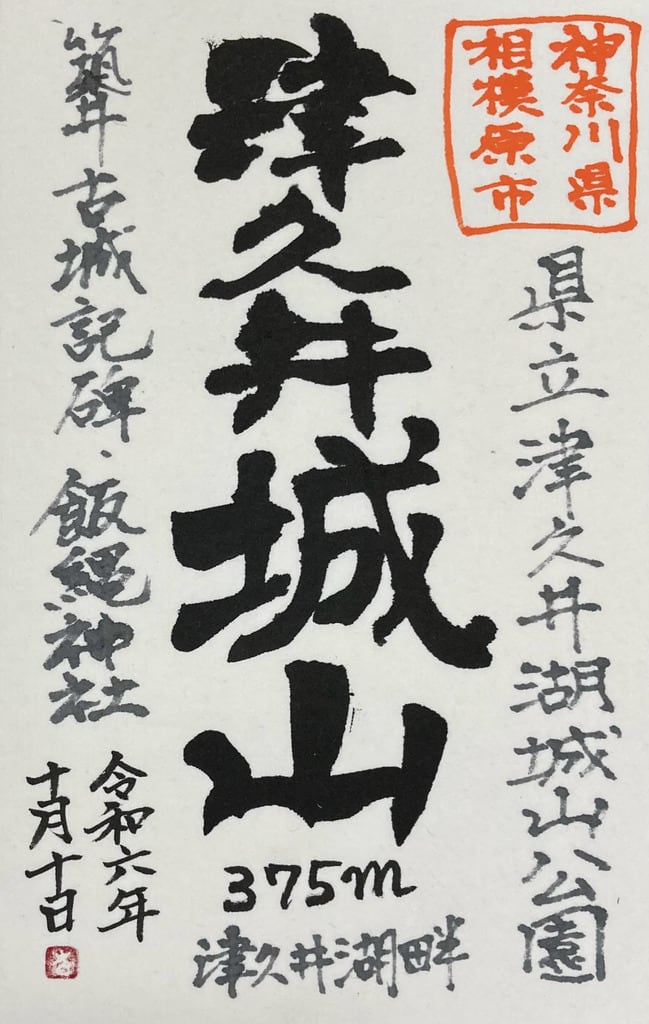 神奈川県
相模原市
県立津久井湖城山公園
津久井城山
375m
津久井湖畔
築井古城記碑・飯縄神社
令和六年
十月十日